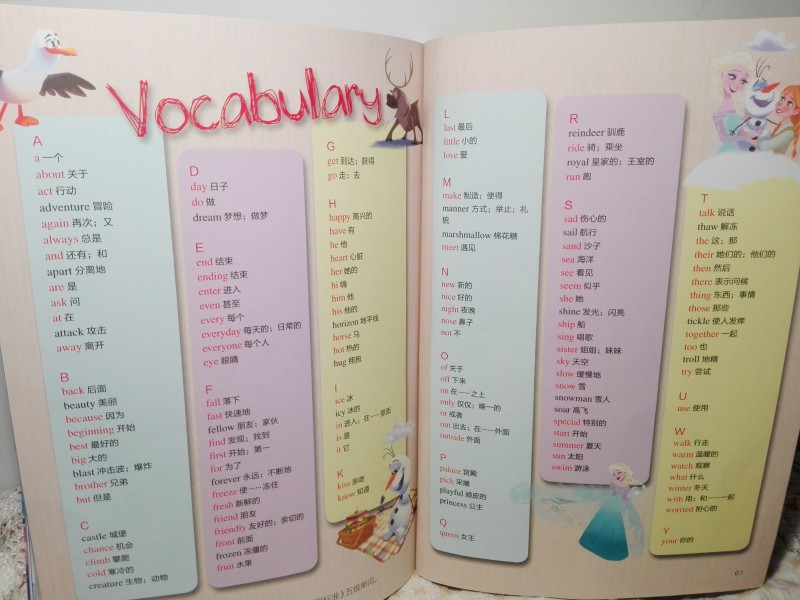 Vocabulary
A
a 一个
about 关于
act 行动
adventure 冒险
again 再次；又
always 总是
and 还有；和
apart 分离地
are 是
ask 问
at 在
attack 攻击
away 离开
B
back 后面
beauty 美丽
because 因为
beginning 开始
best 最好的
big 大的
blast 冲击波；爆炸
brother 兄弟
but 但是
C
castle 城堡
chance 机会
climb 攀爬
cold 寒冷的
creature 生物；动物
D
day 日子
do 做
dream 梦想；做梦
E
end 结束
ending 结束
enter 进入
even 甚至
every 每个
everyday 每天的；日常的
everyone 每个人
eye 眼睛
F
fall 落下
fast 快速地
fellow 朋友；家伙
find 发现；找到
first 开始；第一
for 为了
forever 永远；不断地
freeze 使……冻住
fresh 新鲜的
friend 朋友
friendly 友好的；亲切的
front 前面
frozen 冻僵的
fruit 水果
G
get 到达；获得
go 走；去
H
happy 高兴的
have 有
he 他
heart 心脏
her 她的
hi 嗨
him 他
his 他的
horizon 地平线
horse 马
hot 热的
hug 拥抱
I
ice 冰
icy 冰的
in 进入；在……里面
is 是
it 它
K
kiss 亲吻
know 知道
五级单词。
L
last 最后
little 小的
love 爱
M
make 制造；使得
manner 方式；举止；礼
貌
marshmallow 棉花糖
meet 遇见
N
new 新的
nice 好的
night 夜晚
nose 鼻子
not 不
O
of 关于
off 下来
on 在……之上
only 仅仅；唯一的
or 或者
out 出去；在……外面
outside 外面
P
palace 宫殿
pick 采摘
playful 顽皮的
princess 公主
Q
queen 女王
R
reindeer 驯鹿
ride 骑；乘坐
royal 皇家的；王室的
run 跑
S
sad 伤心的
sail 航行
sand 沙子
sea 海洋
see 看见
seem 似乎
she 她
shine 发光；闪亮
ship 船
sing 唱歌
sister 姐姐；妹妹
sky 天空
slow 缓慢地
snow 雪
snowman 雪人
soar 高飞
special 特别的
start 开始
summer 夏天
sun 太阳
swim 游泳
T
talk 说话
thaw 解冻
the 这；那
their 她们的；他们的
then 然后
there 表示问候
thing 东西；事情
those 那些
tickle 使人发痒
together 一起
too 也
troll 地精
try 尝试
U
use 使用
W
walk 行走
warm 温暖的
watch 观察
what 什么
winter 冬天
with 用；和……一起
worried 担心的
Y
your 你的
61